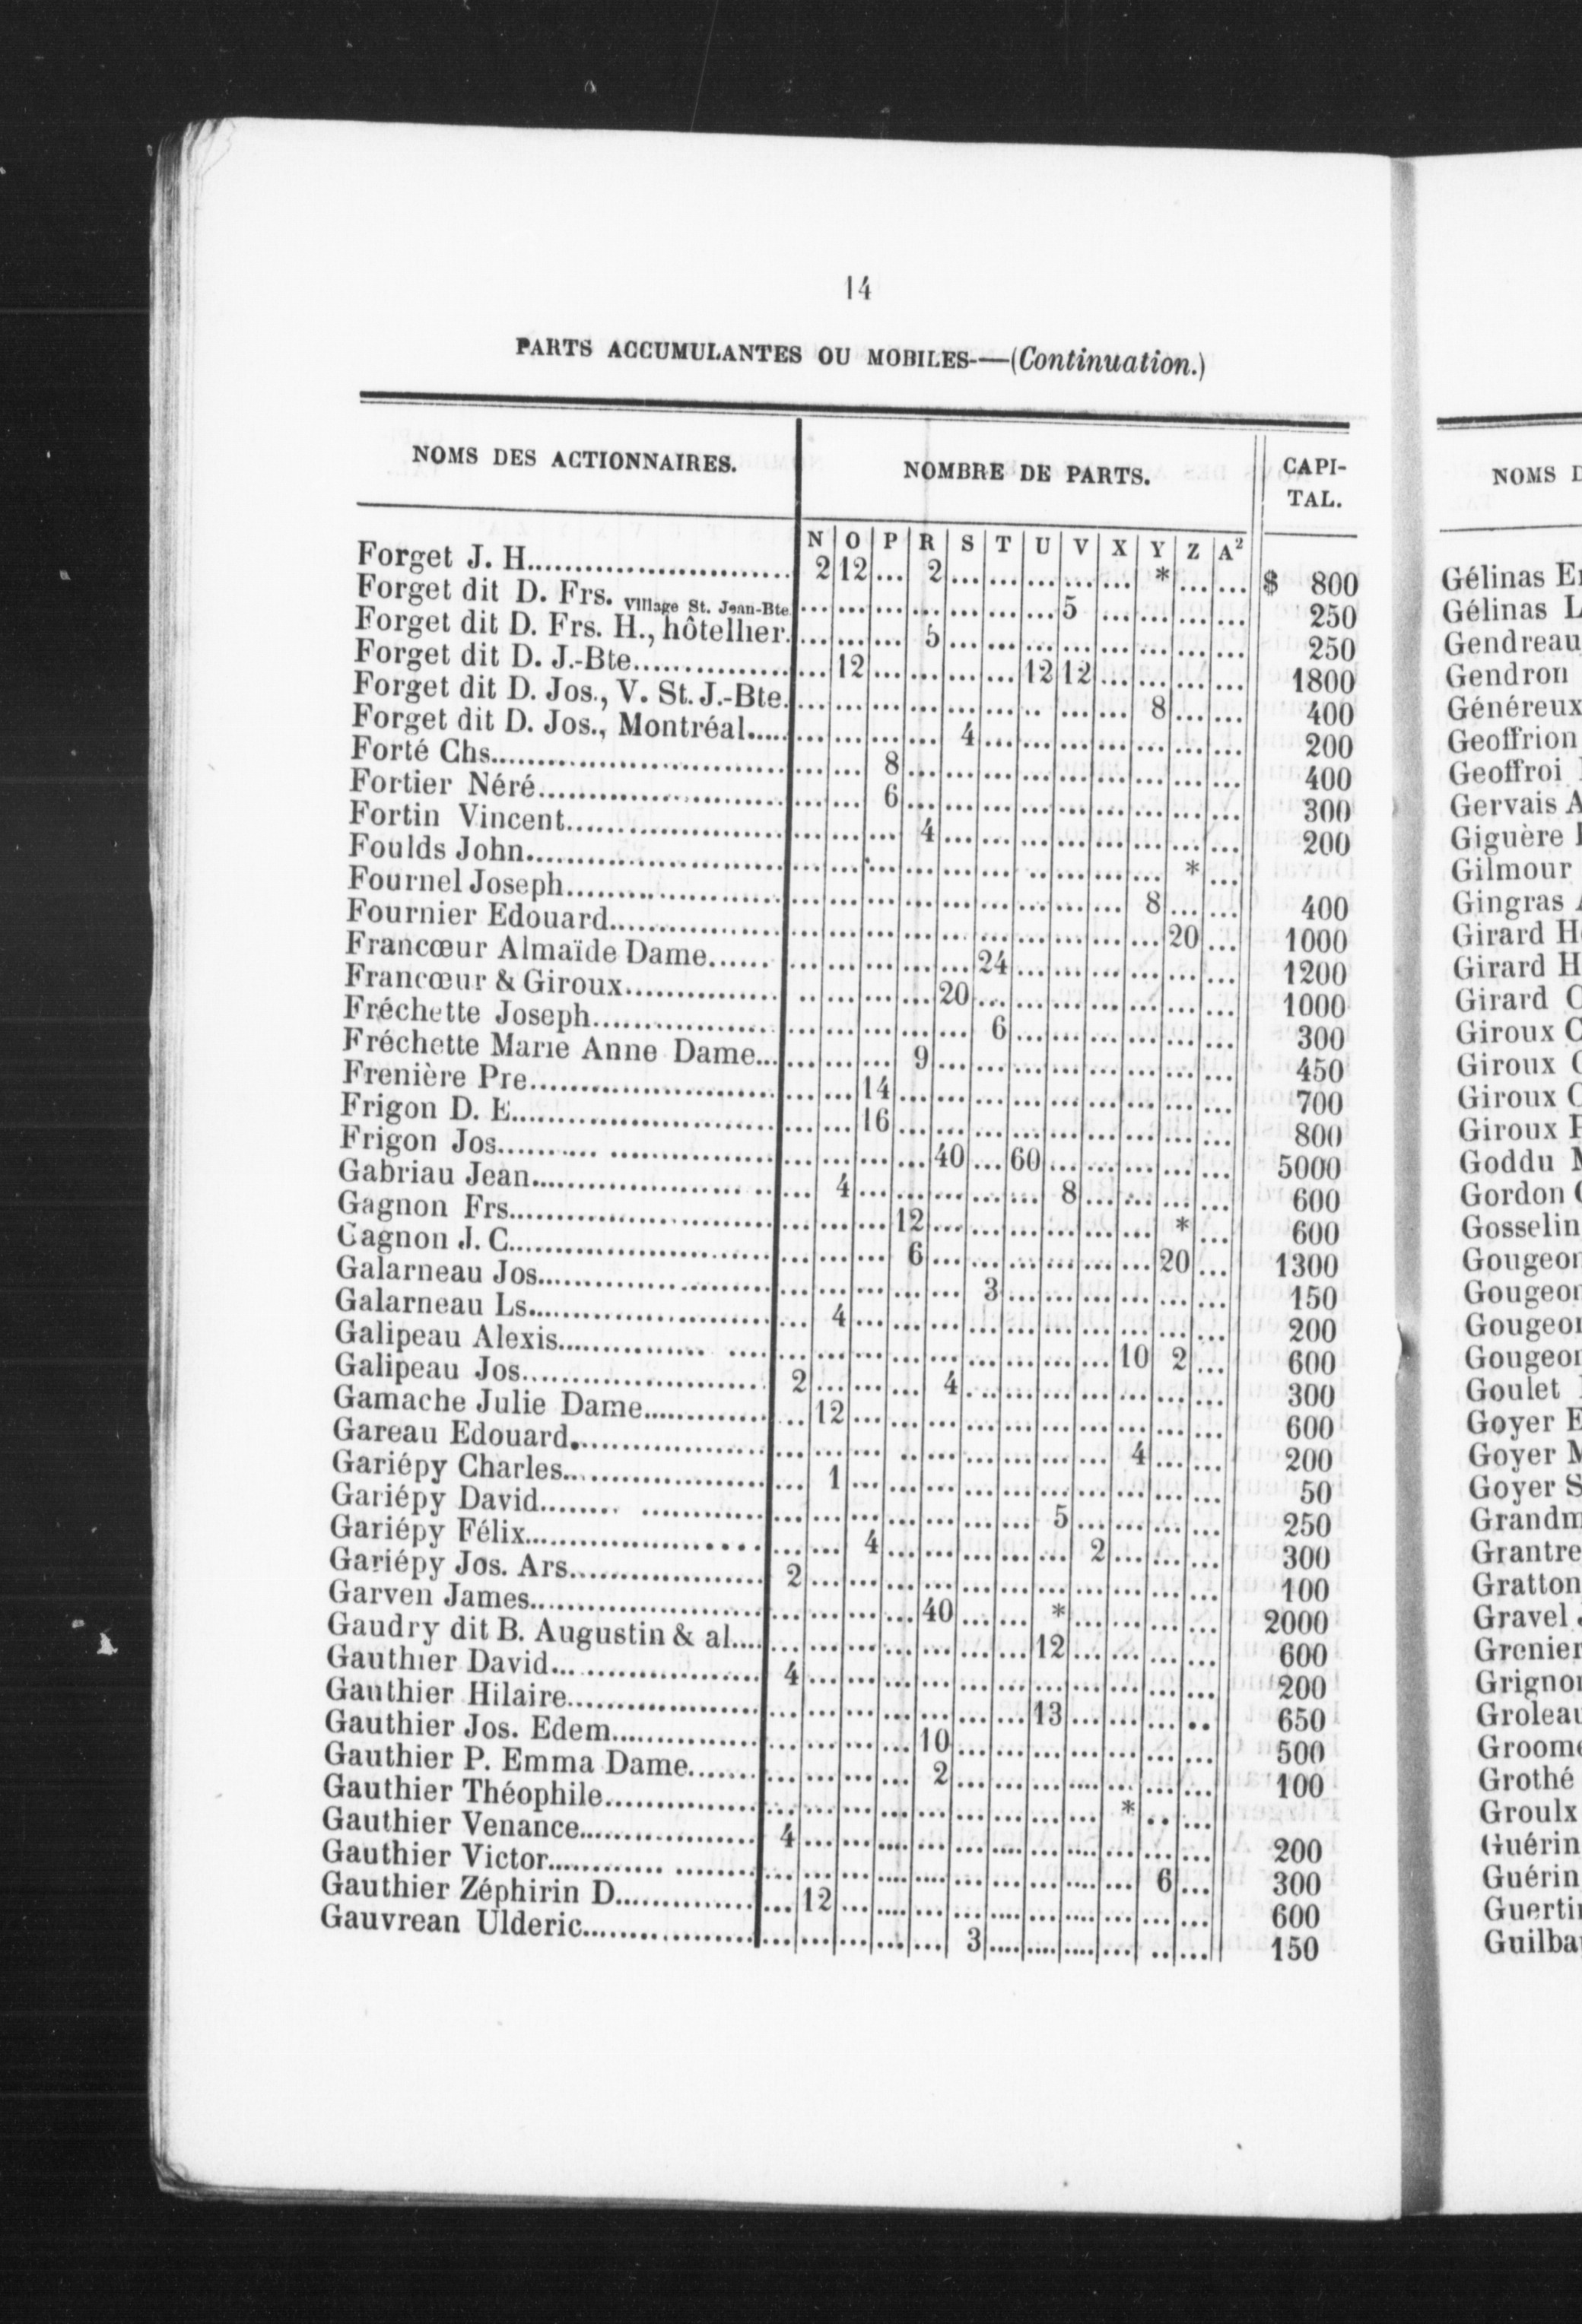 14
PARTS ACCUMULANTES OU MOBILES-—(Continuation.)
NOMS DES ACTIONNAIRES. NOMBRE DE PARTS. CAPI-
TAL.
N O P R S T U V X Y Z A²
Forget J. H. 2 12 ... 2 ... ... ... ... ... * ... ... $ 800
Forget dit D. Frs. Village St. Jean-Bte. ... ... ... ... ... ... ... 5 ... ... ... ... 250
Forget dit D. Frs. H., hôtelier. ... ... ... 5 ... ... ... ... ... ... ... ... 250
Forget dit D. J.-Bte. ... 12 ... ... ... ... 12 12 ... ... ... ... 1800
Forget dit D. Jos., V. St. J.-Bte. ... ... ... ... ... ... ... ... ... 8 ... ... 400
Forget dit D. Jos., Montréal ... ... ... ... 4 ... ... ... ... ... ... ... 200
Forté Chs. ... ... 8 ... ... ... ... ... ... ... ... ... 400
Fortier Néré ... ... 6 ... ... ... ... ... ... ... ... ... 300
Fortin Vincent ... ... ... 4 ... ... ... ... ... ... ... ... 200
Foulds John ... ... ... ... ... ... ... ... ... ... * ...
Fournel Joseph ... ... ... ... ... ... ... ... ... 8 ... ... 400
Fournier Edouard ... ... ... ... ... ... ... ... ... ... 20 ... 1000
Francœur Almaïde Dame ... ... ... ... ... 24 ... ... ... ... ... ... 1200
Francœur & Giroux ... ... ... ... 20 ... ... ... ... ... ... ... 1000
Fréchette Joseph ... ... ... ... ... 6 ... ... ... ... ... ... 300
Fréchette Marie Anne Dame ... ... ... 9 ... ... ... ... ... ... ... ... 450
Frenière Pre ... ... 14 ... ... ... ... ... ... ... ... ... 700
Frigon D. E. ... ... 16 ... ... ... ... ... ... ... ... ... 800
Frigon Jos. ... ... ... ... 40 ... 60 ... ... ... ... ... 5000
Gabriau Jean ... 4 ... ... ... ... ... 8 ... ... ... ... 600
Gagnon Frs. ... ... ... 12 ... ... ... ... ... ... * ... 600
Gagnon J. C. ... ... ... 6 ... ... ... ... ... ... 20 ... 1300
Galarneau Jos. ... ... ... ... ... 3 ... ... ... ... ... ... 150
Galarneau Ls. ... 4 ... ... ... ... ... ... ... ... ... ... 200
Galipeau Alexis ... ... ... ... ... ... ... ... ... 10 2 ... 600
Galipeau Jos. 2 ... ... ... 4 ... ... ... ... ... ... ... 300
Gamache Julie Dame ... 12 ... ... ... ... ... ... ... ... ... ... 600
Gareau Edouard ... ... ... ... ... ... ... ... ... 4 ... ... 200
Gariépy Charles ... 1 ... ... ... ... ... ... ... ... ... ... 50
Gariépy David ... ... ... ... ... ... ... 5 ... ... ... ... 250
Gariépy Félix ... ... 4 ... ... ... ... ... 2 ... ... ... 300
Gariépy Jos. Ars. 2 ... ... ... ... ... ... ... ... ... ... ... 100
Garven James ... ... ... ... 40 ... ... * ... ... ... ... 2000
Gaudry dit B. Augustin & al. ... ... ... ... ... ... ... 12 ... ... ... ... 600
Gauthier David 4 ... ... ... ... ... ... ... ... ... ... ... 200
Gauthier Hilaire ... ... ... ... ... ... ... 13 ... ... ... ... 650
Gauthier Jos. Edem ... ... ... ... 10 ... ... ... ... ... ... ... 500
Gauthier P. Emma Dame ... ... ... ... 2 ... ... ... ... ... ... ... 100
Gauthier Théophile ... ... ... ... ... ... ... ... ... * ... ...
Gauthier Venance 4 ... ... ... ... ... ... ... ... ... ... ... 200
Gauthier Victor ... ... ... ... ... ... ... ... ... ... 6 ... 300
Gauthier Zéphirin D. ... 12 ... ... ... ... ... ... ... ... ... ... 600
Gauvrean Ulderic ... ... ... ... ... 3 ... ... ... ... ... ... 150
NOMS
Gélinas
Gélinas
Gendreau
Gendron
Généreux
Geoffrion
Geoffroi
Gervais A
Giguère
Gilmour
Gingras
Girard
Girard H
Girard
Giroux
Giroux
Giroux
Giroux
Goddu
Gordon
Gosselin
Gougeo
Gougeo
Gougeo
Gougeo
Goulet
Goyer E
Goyer M
Goyer S
Grandm
Grantre
Gratton
Gravel
Grenier
Grigno
Grolea
Groom
Grothé
Groulx
Guérin
Guérin
Guerti
Guilba